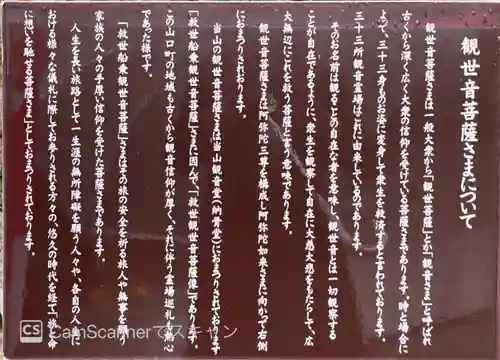 観世音菩薩さまについて
観世音菩薩さまは一般大衆から「観世菩薩」とか「観音さま」と呼ばれ
古くから深く広く大衆の信仰を受けている菩薩さまであります。時と場合に
よって、三十三身ものお姿に変身して衆生を救済するといわれております。
三十三所観音霊場はこれに由来しているのであります。
そのお名前は観ることの自在な者を意味し、観世音とは一切観察する
ことが自在であるように、衆生を観察して自在に大慈大悲をもたらして、広
大無辺にこれを救う菩薩と言う意味であります。
観世音菩薩さまは阿弥陀三尊を構成し阿弥陀如来さまに向かって右側
におまつりされております。
当山の観世音菩薩さまは当山観音堂(納骨堂)におまつりされております
「救世船乗観世音菩薩」さまに因んで、「救世観世音菩薩像」であります
この山口町の地域も古くから観音信仰が厚く、それに伴う霊場巡礼も熱心
であった様です。
「救世船乗観世音菩薩」さまはその旅の安全を祈る旅人や無事を願う
家族の人々の手厚い信仰を受けた菩薩さまであります。
人生を長い旅路として一生涯の無所障礙を願う人々や、各自の人生に
おける様々な儀礼に際してお参りされる方々の、悠久の時代を経て「救う命
に想いを馳せる菩薩さま」としておまつりされております。
CS CamScannerでスキャン